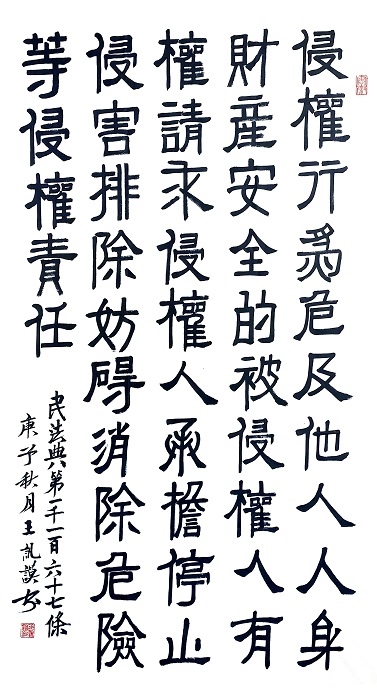 侵權行爲危及他人人身
財産安全的被侵權人有
權請求侵權人承擔停止
侵害排除妨碍消除危險
等侵權責任
民法典第一千一百六十七條
庚子秋月王